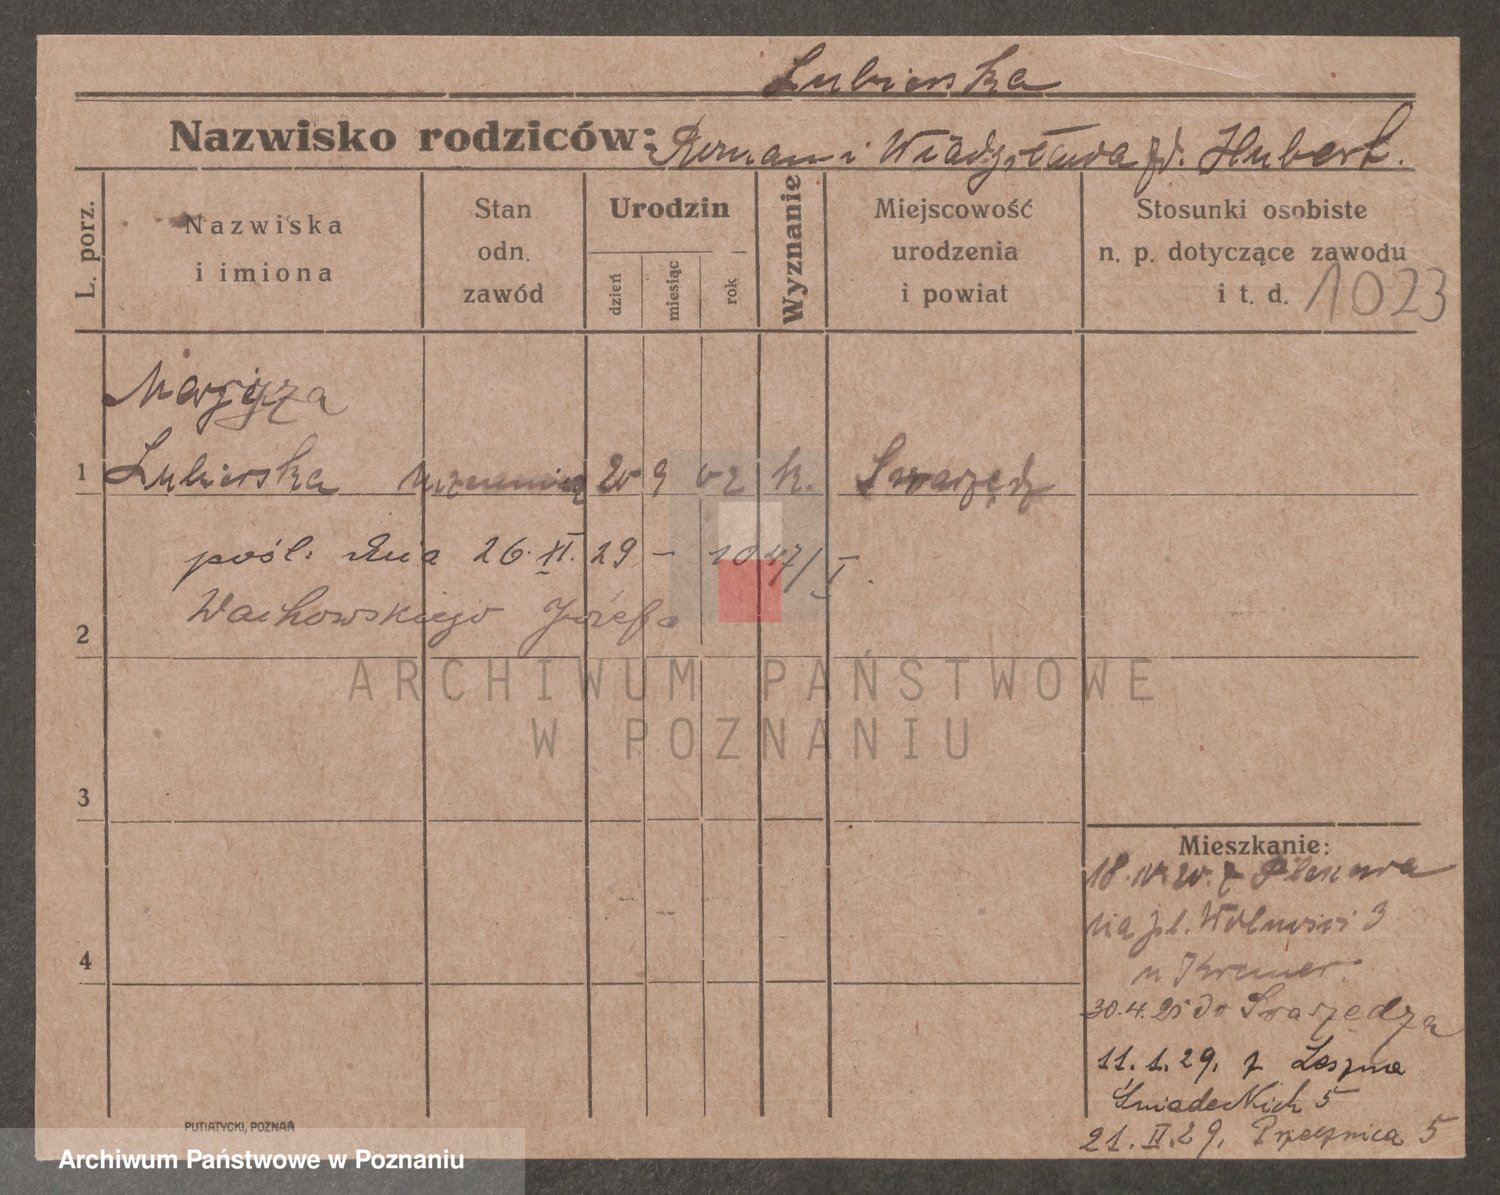 Lubierska
Nazwisko rodziców: Roman i Władysława zd. Hubert.
L. porz.
Nazwiska
i imiona
Stan
odn.
zawód
Urodzin
dzień
miesiąc
rok
Wyznanie
Miejscowość
urodzenia
i powiat
Stosunki osobiste
n. p. dotyczące zawodu
i t. d.
1023
1
Lubierska 20 9 02 k. Swarzędz
pośl: dnia 26.XI.29 – 1047/I.
2
Wachowskiego Józefa
ARCHIWUM PAŃSTWOWE
W POZNANIU
3
4
Mieszkanie:
na pl. Wolności 3
u Kremer
30.4.25 do Swarzędza
11.1.29. z
Śniadeckich 5
21.II.29. 5
PUTIATYCKI, POZNAŃ
Archiwum Państwowe w Poznaniu